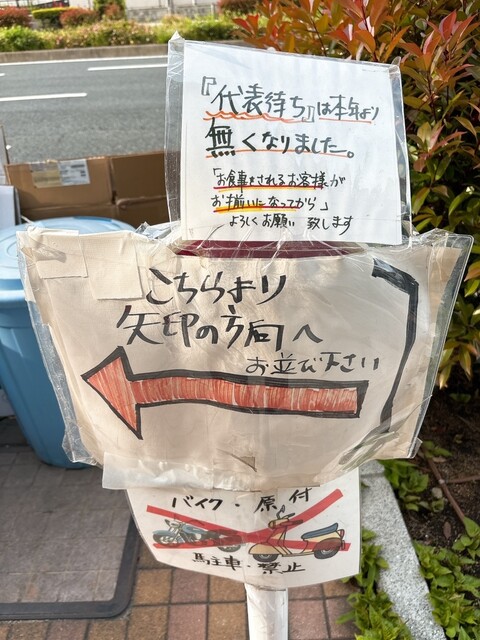 『代表待ち』は本年より
無くなりました。
「お食事をされるお客様が
お揃いになってから」
よろしくお願い致します
こちらより
矢印の方向へ
お並び下さい
バイク・原付
駐車・禁止